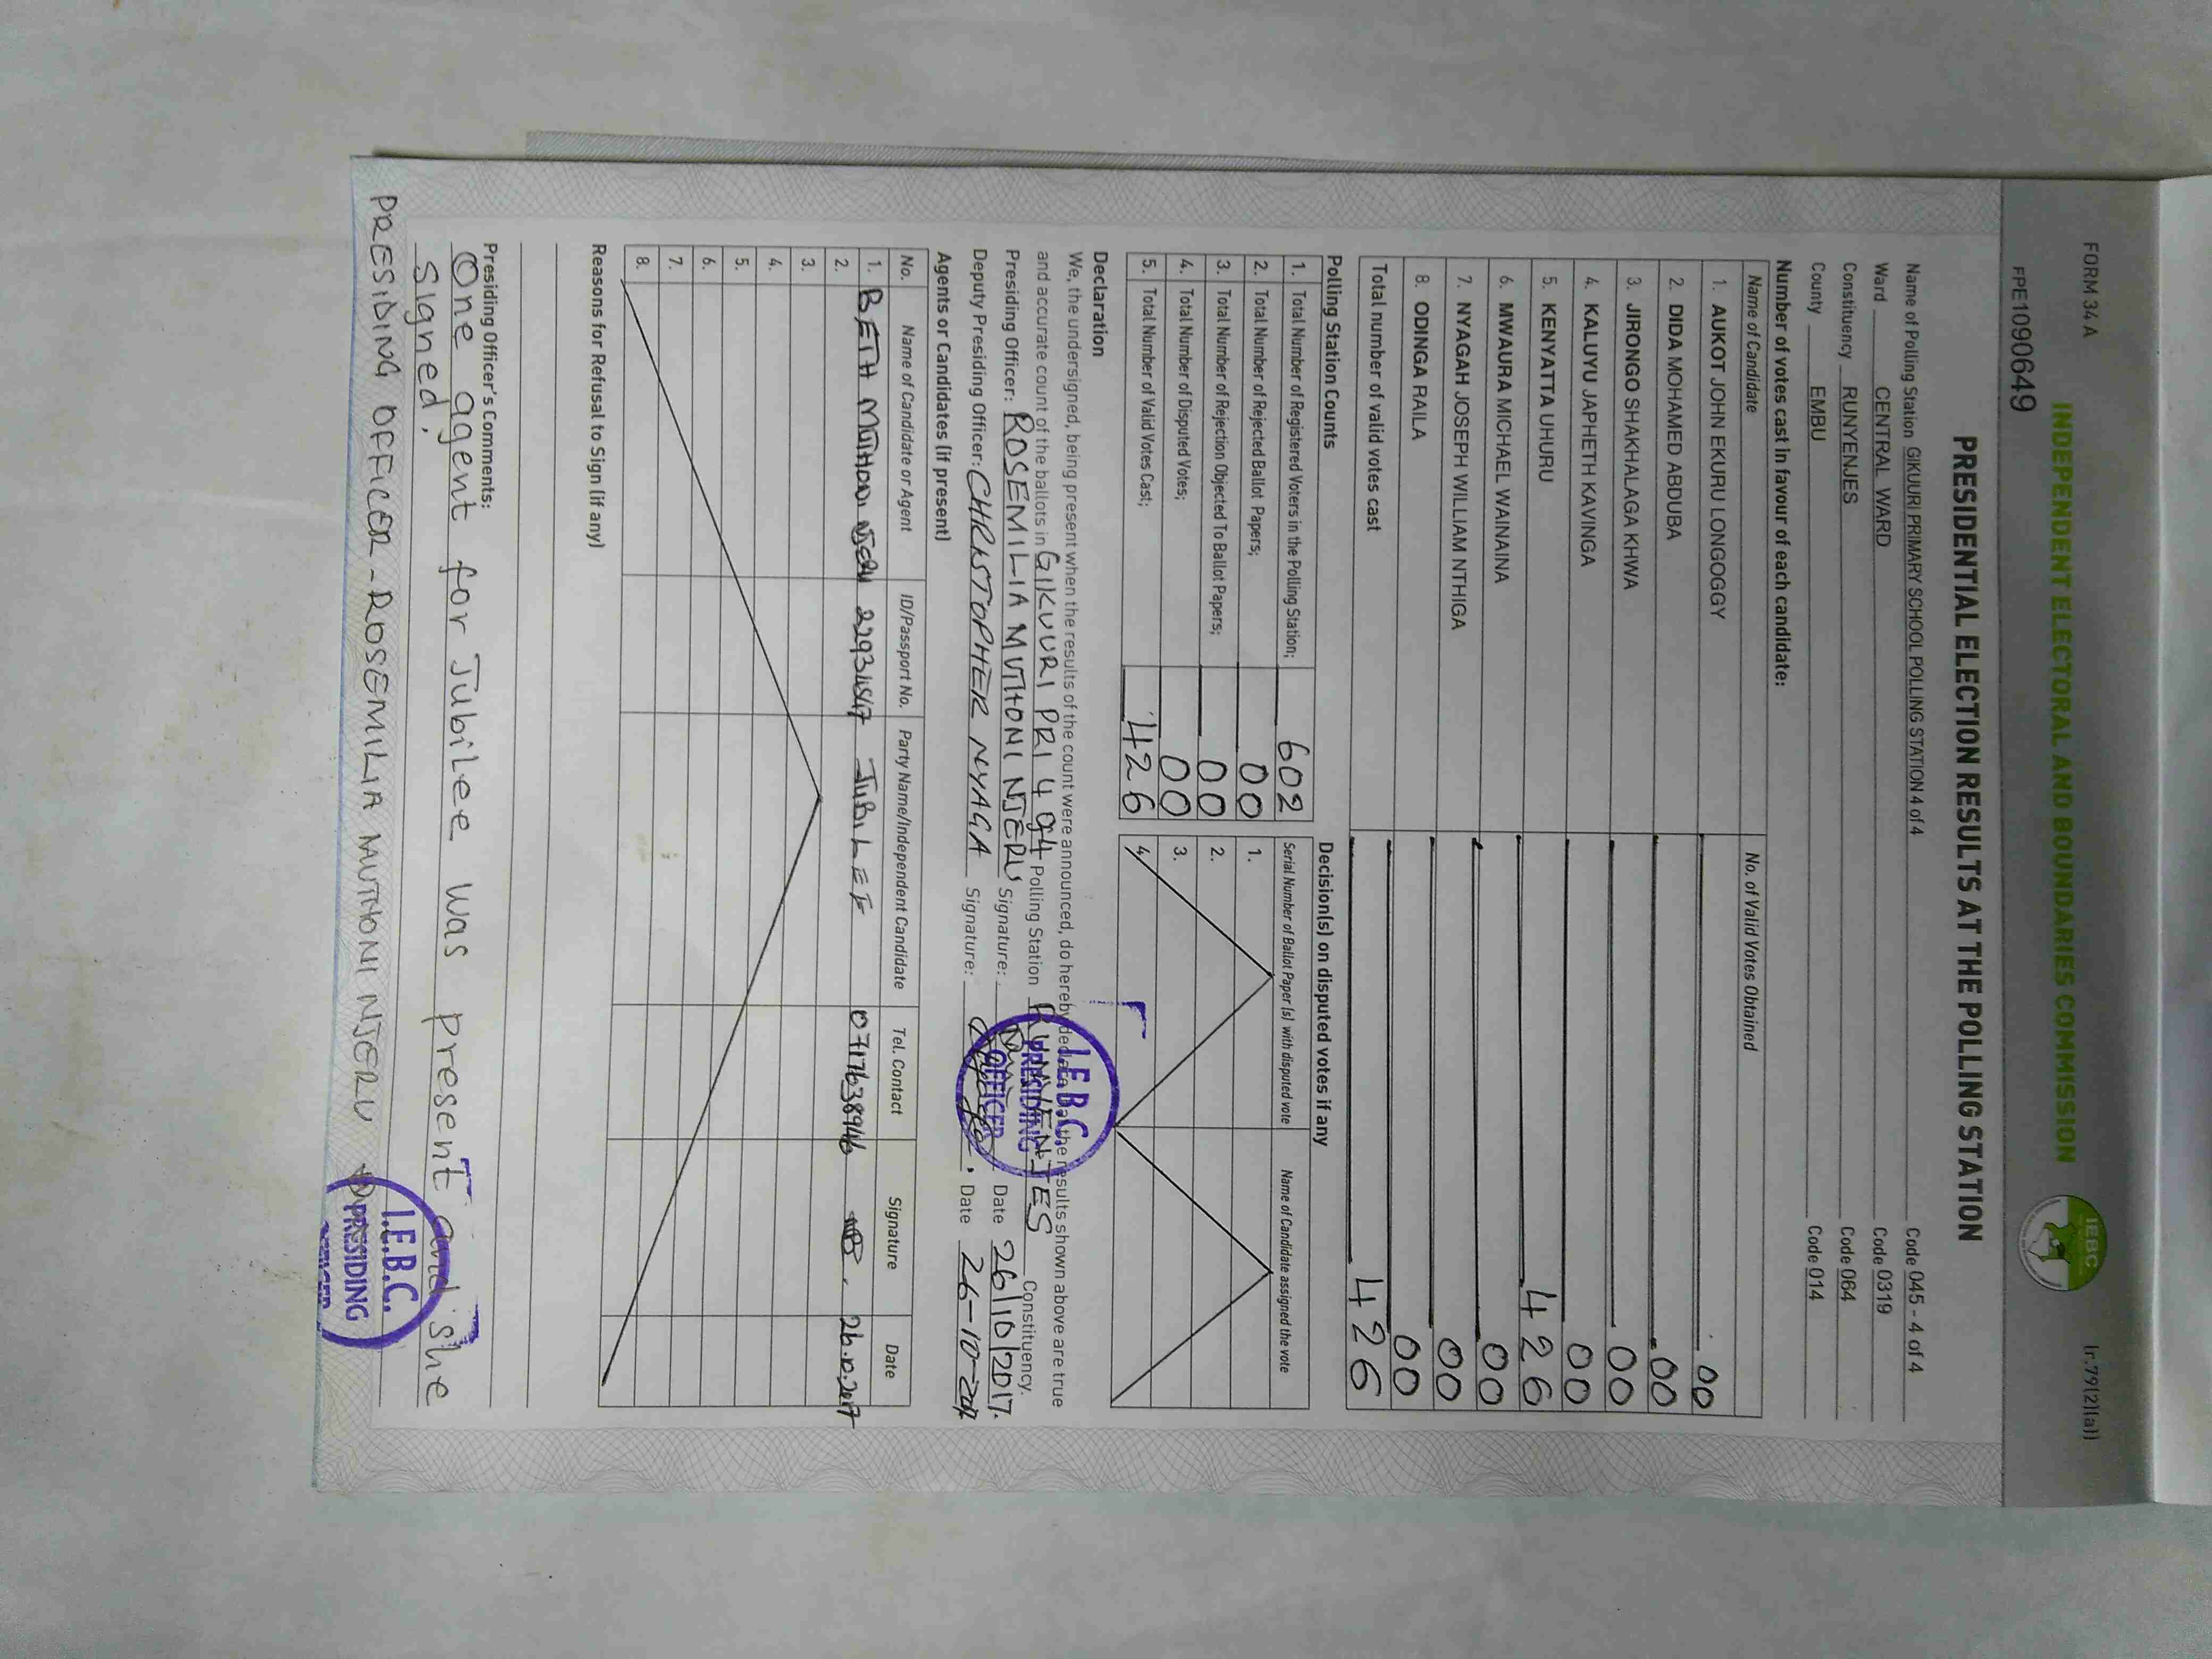 FORM 34 A
INDEPENDENT ELECTORAL AND BOUNDARIES COMMISSION
IEBC
(r.79(2)(a))
FPE1090649
PRESIDENTIAL ELECTION RESULTS AT THE POLLING STATION
Name of Polling Station GIKUURI PRIMARY SCHOOL POLLING STATION 4 of 4 Code 045 - 4 of 4
Ward CENTRAL WARD Code 0319
Constituency RUNYENJES Code 064
County EMBU Code 014
Number of votes cast in favour of each candidate:
Name of Candidate No. of Valid Votes Obtained
1. AUKOT JOHN EKURU LONGOGGY 00
2. DIDA MOHAMED ABDUBA 00
3. JIRONGO SHAKHALAGA KHWA 00
4. KALUYU JAPHETH KAVINGA 00
5. KENYATTA UHURU 426
6. MWAURA MICHAEL WAINAINA 00
7. NYAGAH JOSEPH WILLIAM NTHIGA 00
8. ODINGA RAILA 00
Total number of valid votes cast 426
Polling Station Counts
1. Total Number of Registered Voters in the Polling Station; 602
2. Total Number of Rejected Ballot Papers; 00
3. Total Number of Rejection Objected To Ballot Papers; 00
4. Total Number of Disputed Votes; 00
5. Total Number of Valid Votes Cast; 426
Decision(s) on disputed votes if any
Serial Number of Ballot Paper (s) with disputed vote Name of Candidate assigned the vote
1.
2.
3.
4.
Declaration
We, the undersigned, being present when the results of the count were announced, do hereby declare that the results shown above are true
and accurate count of the ballots in GIKUURI PRI 4 of 4 Polling Station RUNYENJES Constituency.
Presiding Officer: ROSEMILIA MUTHONI NJERU Signature: Date 26/10/2017.
Deputy Presiding Officer: CHRISTOPHER NYAGA Signature: Date 26-10-2017
I.E.B.C.
PRESIDING
OFFICER
Agents or Candidates (if present)
No. Name of Candidate or Agent ID/Passport No. Party Name/Independent Candidate Tel. Contact Signature Date
1. BETH MUTHONI JUBILEE 0717638946
2.
3.
4.
5.
6.
7.
8.
Reasons for Refusal to Sign (if any)
Presiding Officer's Comments:
One agent for Jubilee was present and she
Signed.
PRESIDING OFFICER - ROSEMILIA MUTHONI NJERU
I.E.B.C.
PRESIDING